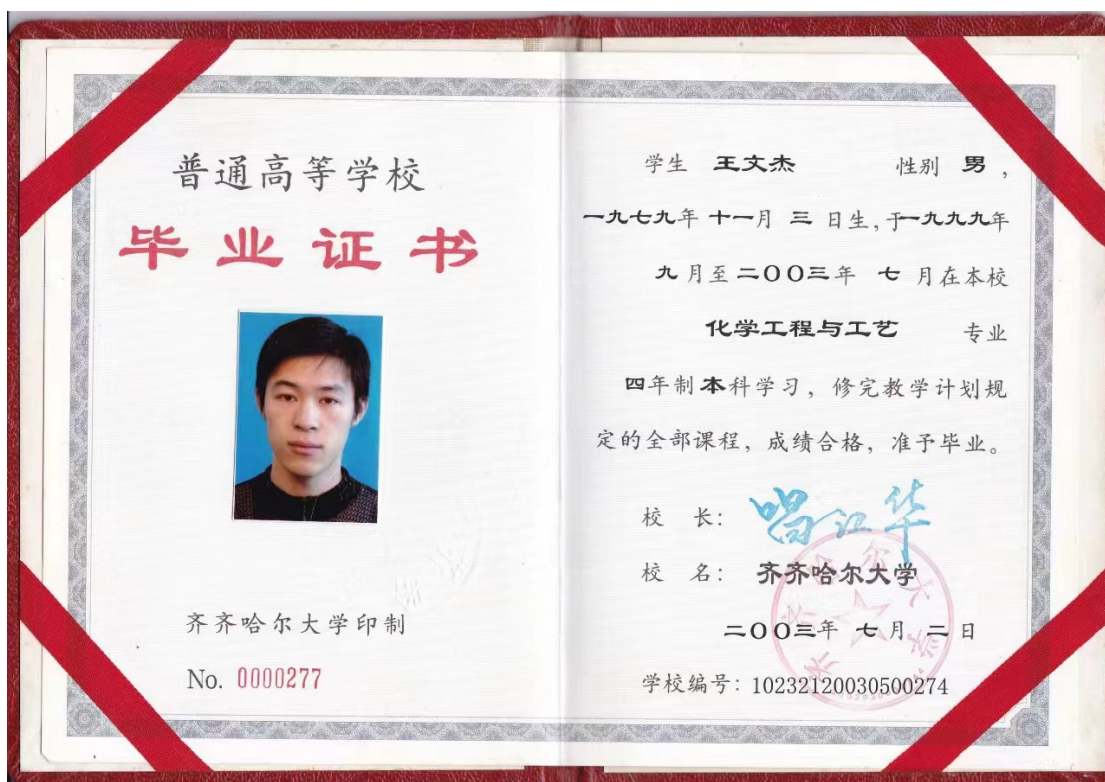 普通高等学校
毕业证书
齐齐哈尔大学印制
No. 0000277
学生 王文杰 性别 男，
一九七九年 十一月 三 日生，于一九九九年
九 月至二〇〇三年 七 月在本校
化学工程与工艺 专业
四年制本科学习，修完教学计划规
定的全部课程，成绩合格，准予毕业。
校 长：
校 名： 齐齐哈尔大学
二〇〇三年 七 月 二 日
学校编号：10232120030500274
齐齐哈尔大学